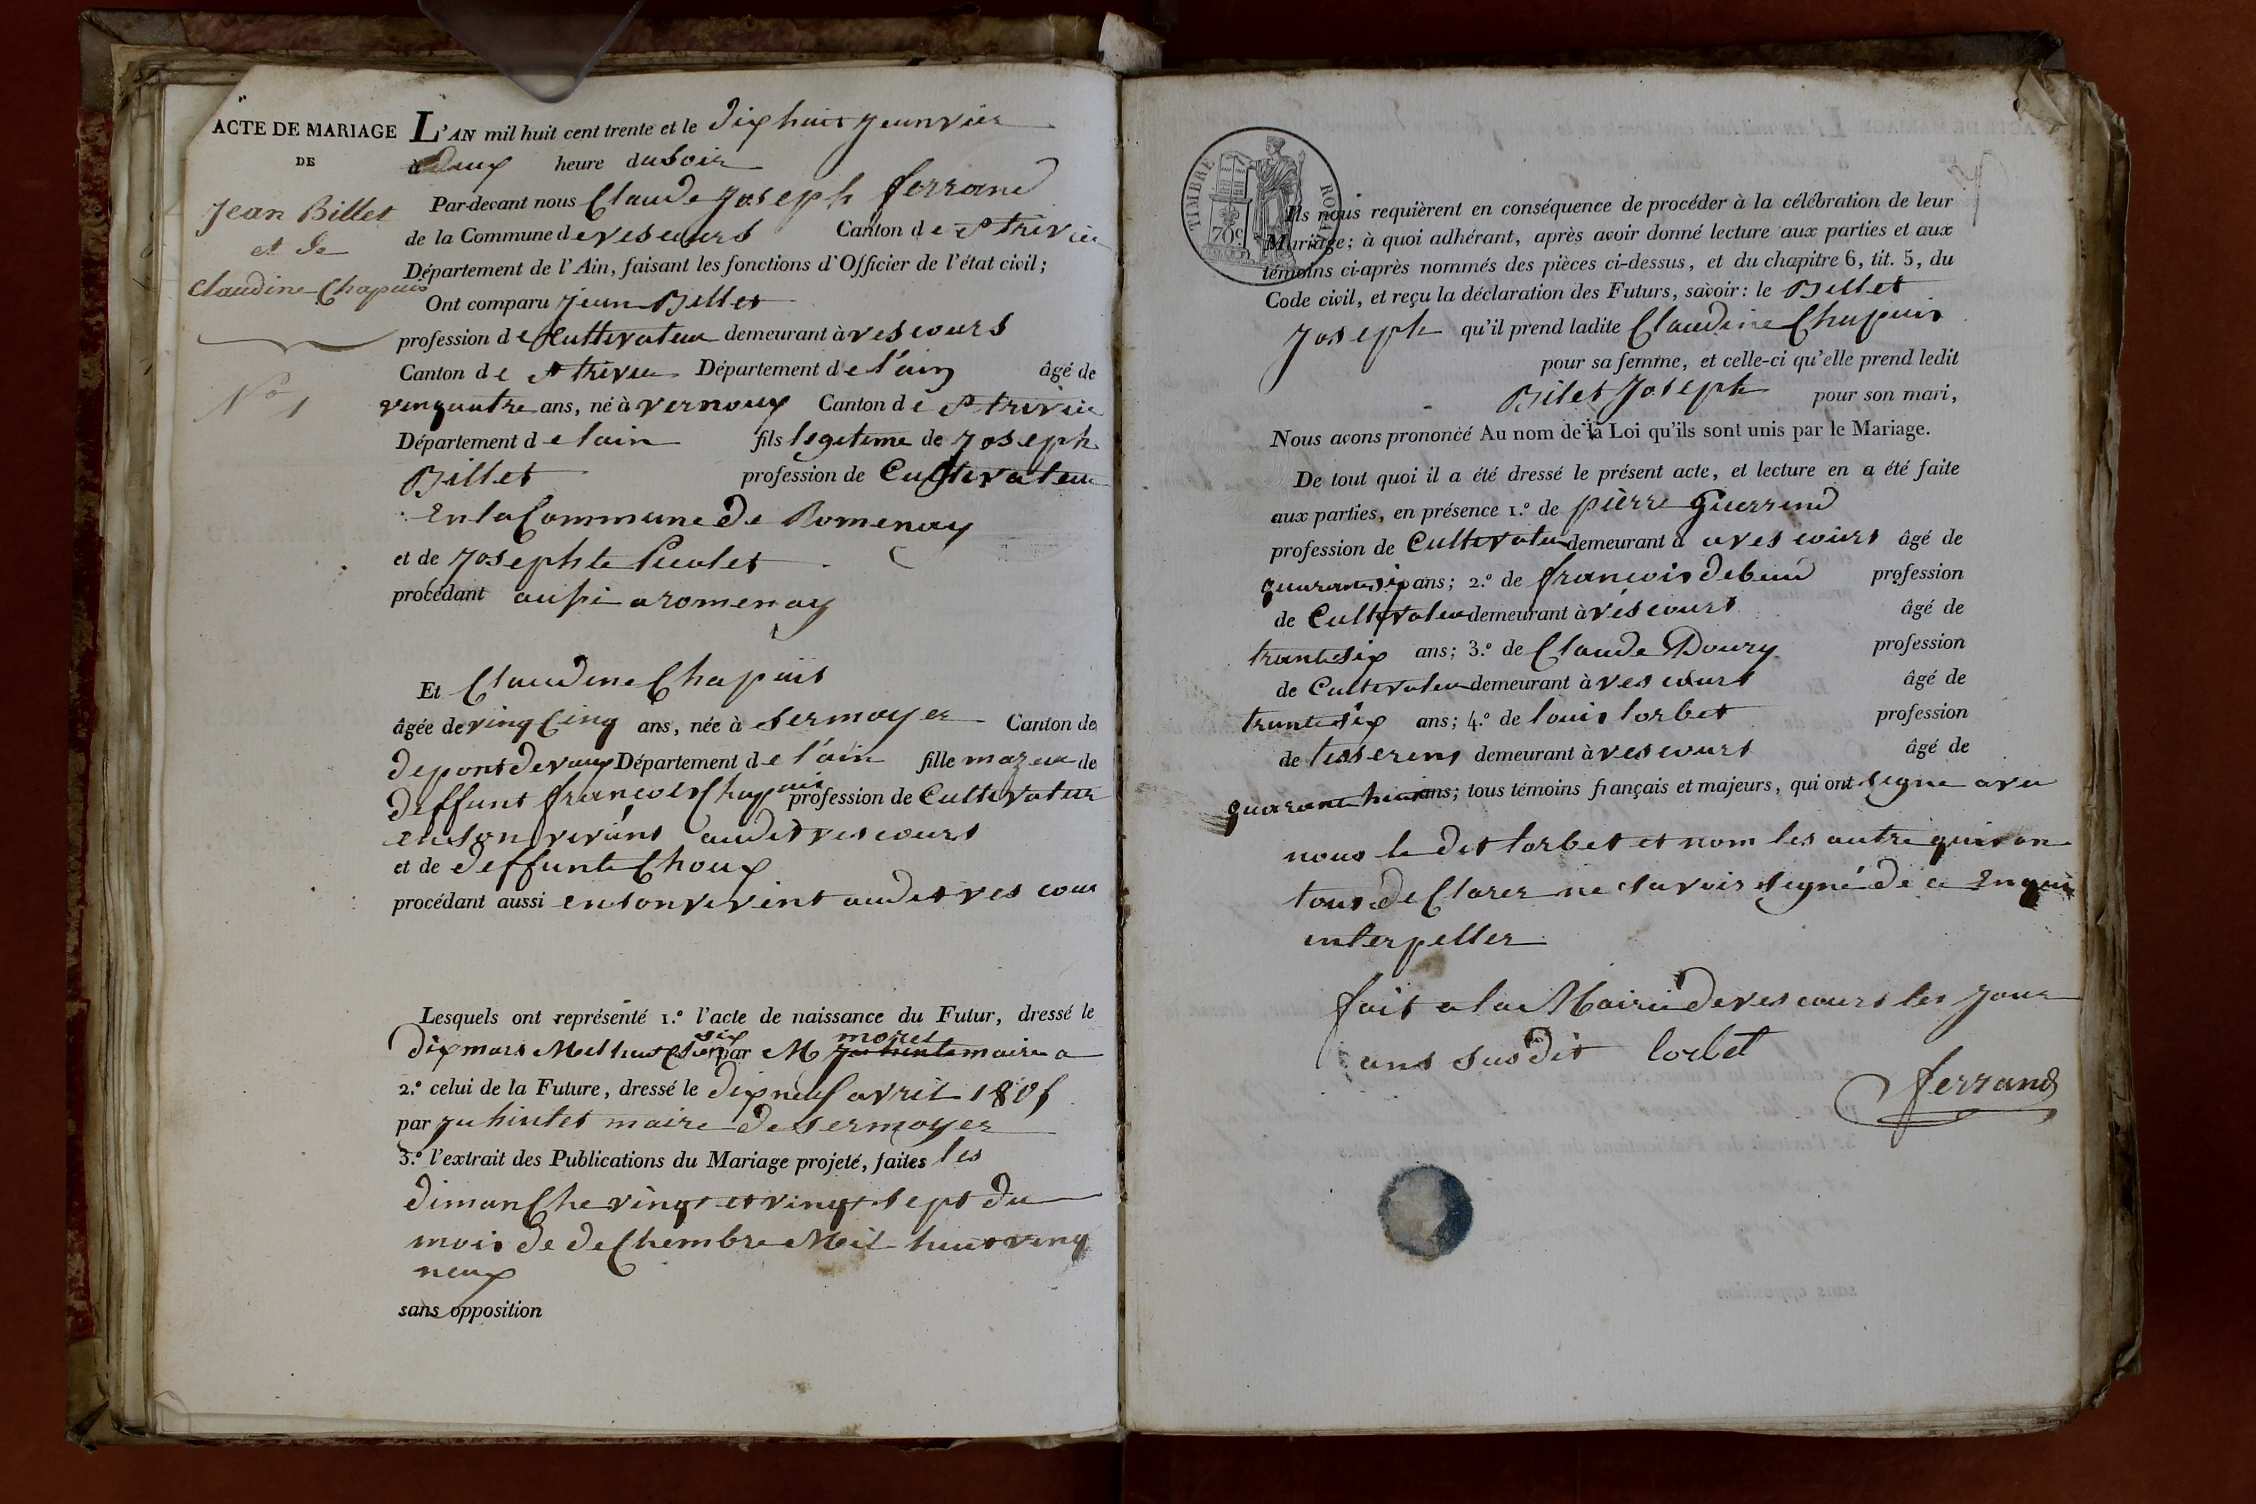 ACTE DE MARIAGE
DE
Jean Billet
et de
Claudine Chapuis
N° 1
L'AN mil huit cent trente et le dix huit Jeanvier
a deux heure du soir
Par-devant nous Claude Joseph ferrand
de la Commune de vescours Canton de St trivier
Département de l'Ain, faisant les fonctions d'Officier de l'état civil;
Ont comparu Jean Billet
profession de Cultivateur demeurant à vescours
Canton de St trivier Département de l'ain âgé de
vinquatre ans, né à vernoux Canton de St trivier
Département de lain fils legitime de Joseph
Billet profession de Cultivateur
en la Commune de Romenay
et de Josephte
procédant aussi a romenay
Et Claudine Chapuis
âgée de vinq Cinq ans, née à Sermoyer Canton de
de pont devaux Département de l'ain fille mazeur de
deffunt francois Chapuis profession de Cultivateur
en son vivant audit vescours
et de deffunte Choux
procédant aussi en son vivent audit ves cour
Lesquels ont représenté 1.° l'acte de naissance du Futur, dressé le
dix mars Mil huit C six par M morel maire a
2.° celui de la Future, dressé le dix neuf avril 1805
par Juhintet maire de Sermoyer
3.° l'extrait des Publications du Mariage projeté, faites les
dimanChe vingt et vingt sept du
mois de deChembre Mil huit vinq
neux
sans opposition
TIMBRE ROYAL
70c
Ils nous requièrent en conséquence de procéder à la célébration de leur
Mariage; à quoi adhérant, après avoir donné lecture aux parties et aux
témoins ci-après nommés des pièces ci-dessus, et du chapitre 6, tit. 5, du
Code civil, et reçu la déclaration des Futurs, savoir: le Billet
Joseph qu'il prend ladite Claudine Chapuis
pour sa femme, et celle-ci qu'elle prend ledit
Bilet Joseph pour son mari,
Nous avons prononcé Au nom de la Loi qu'ils sont unis par le Mariage.
De tout quoi il a été dressé le présent acte, et lecture en a été faite
aux parties, en présence 1.° de pierre Guerrend
profession de Cultivateu demeurant à a ves cours âgé de
quarantesix ans; 2.° de francois debeud profession
de Cultivateu demeurant à véscours âgé de
trantesix ans; 3.° de Claude Doury profession
de Cultivateu demeurant à ves cours âgé de
trantesix ans; 4.° de louis lorbet profession
de tisserens demeurant à vescours âgé de
quarante huit ans; tous témoins français et majeurs, qui ont signe avu
nous le dit lorbet et nom les autre qui on
tous de Clarer ne savoir signé de ce Enqui
interpeller
fait a la Mairie de vescours les jour
ans susdit lorbet
ferrand